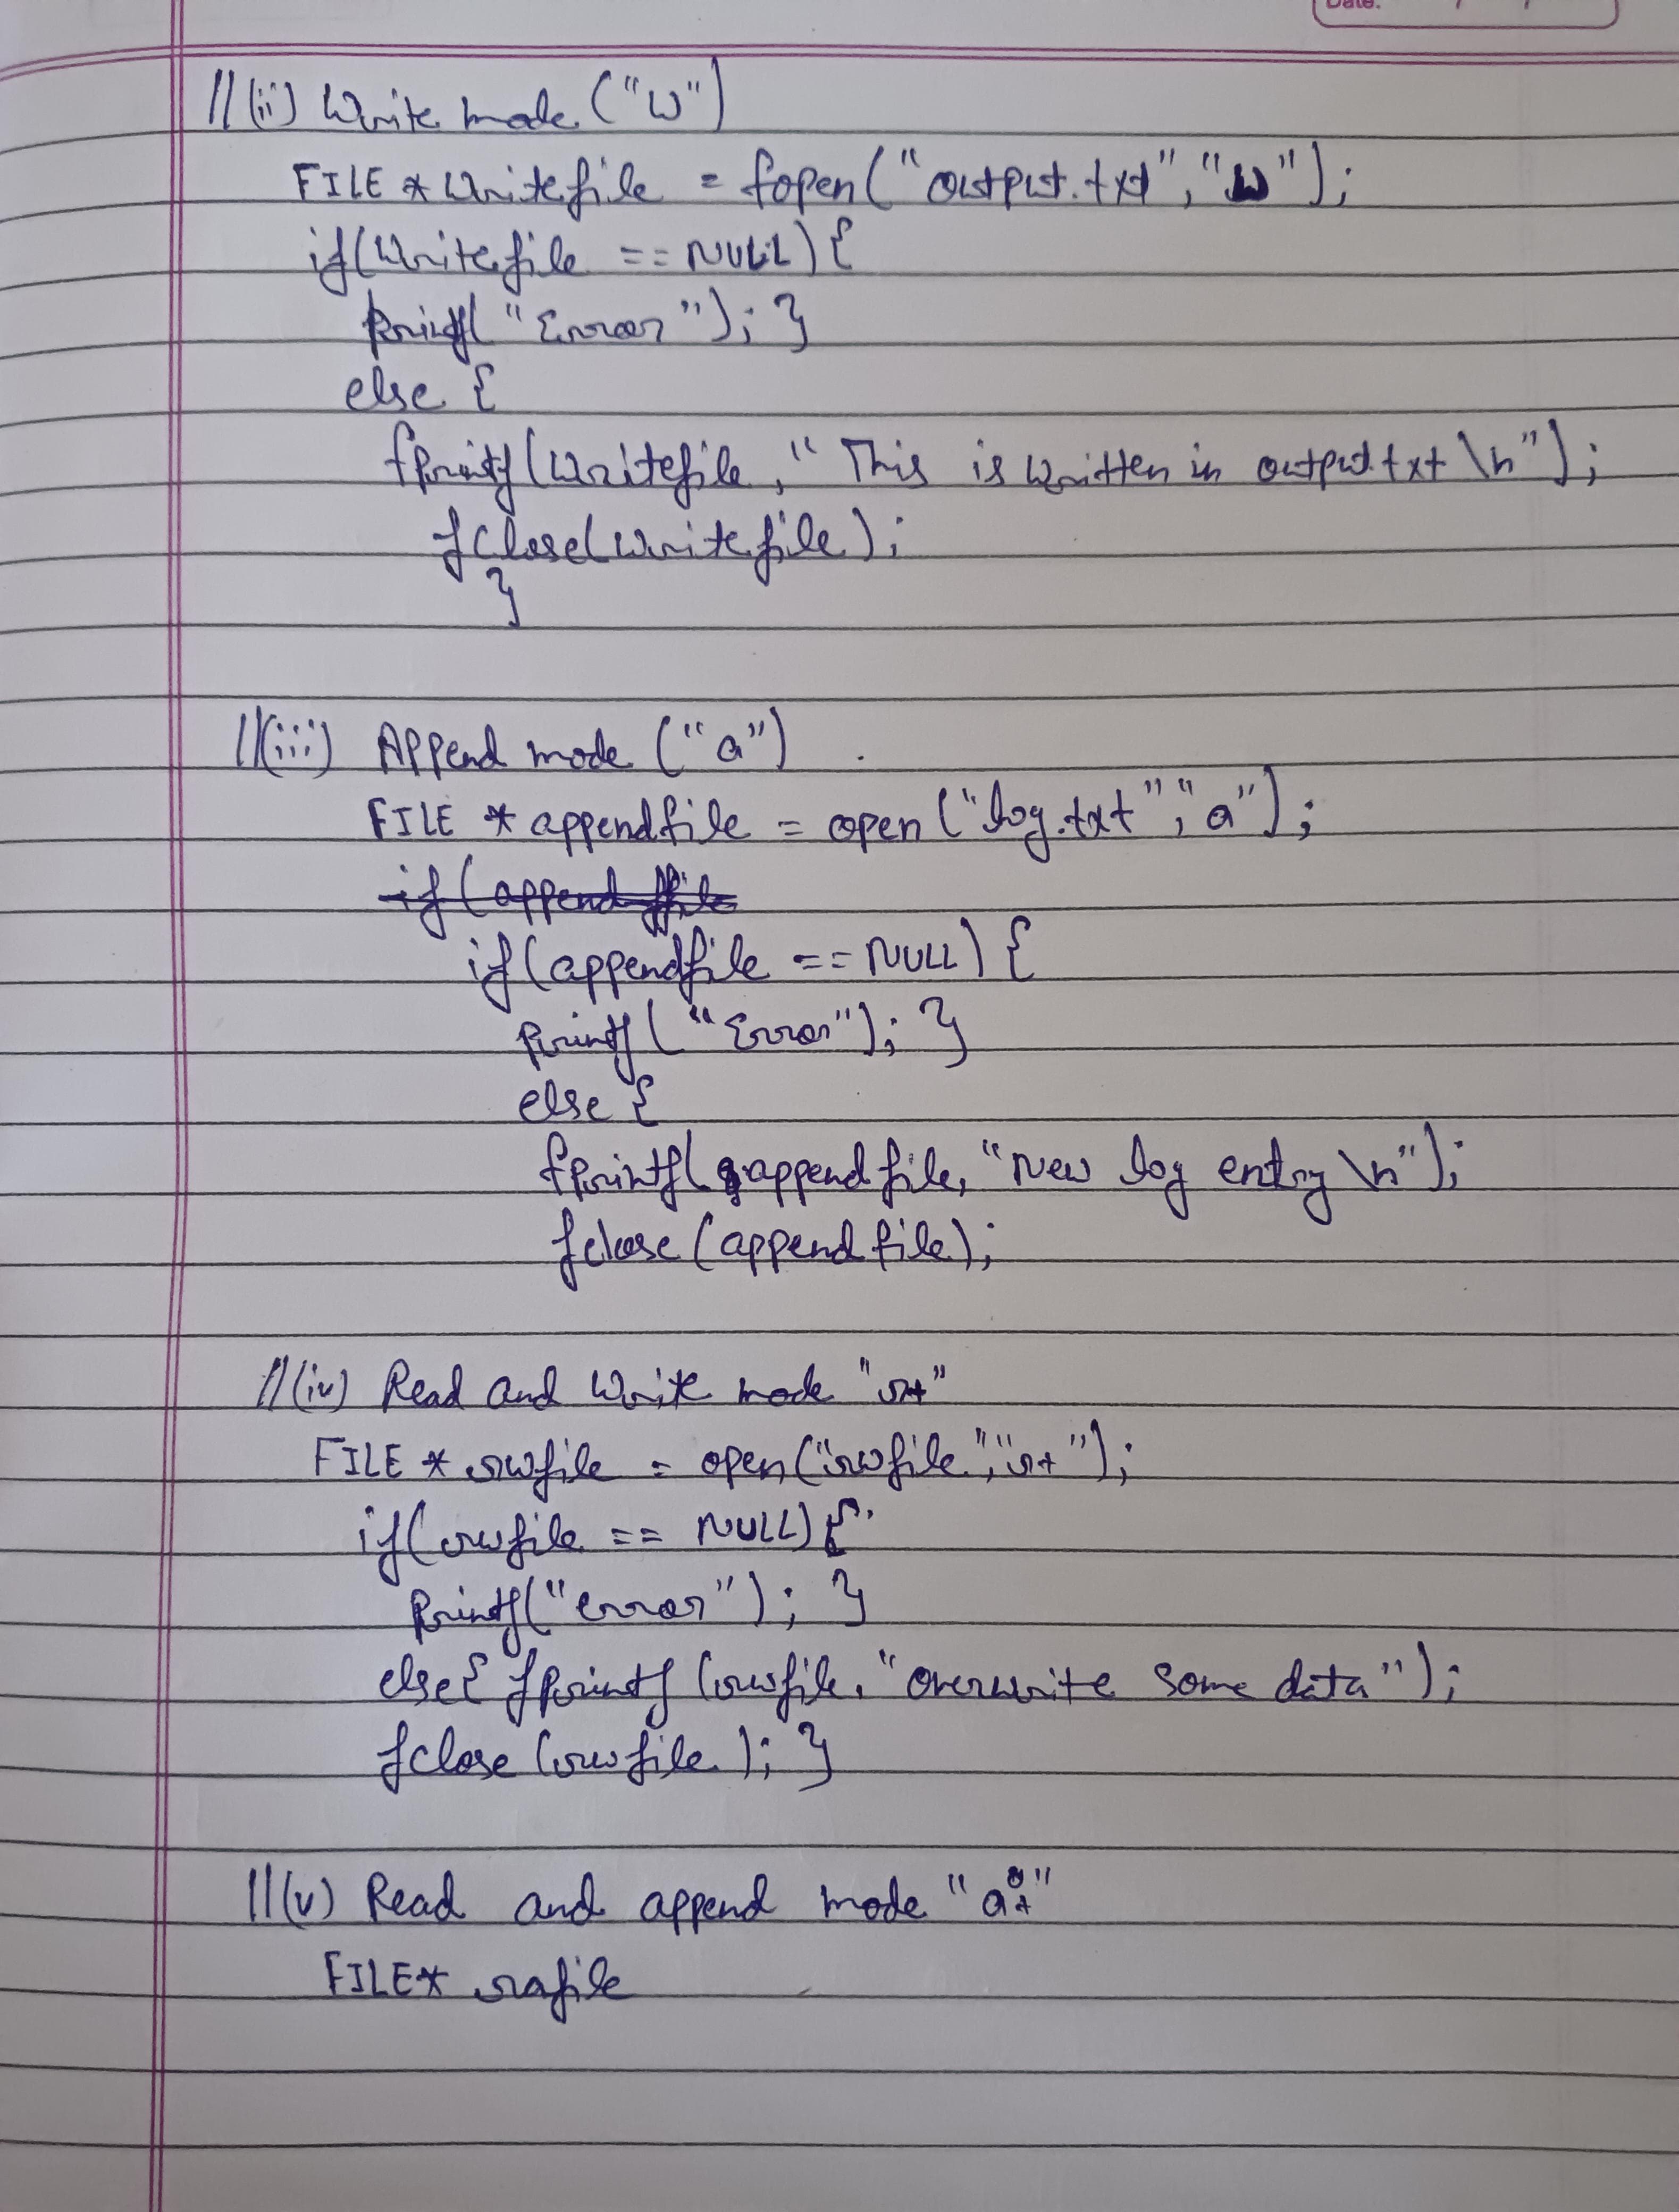 Date:
//(ii) Write mode ("w")
FILE * Writefile = fopen("output.txt", "w");
if(Writefile == NULL) {
printf("Error"); }
else {
fprintf(Writefile, "This is written in output.txt \n");
fclose(Writefile);
}
//(iii) Append mode ("a")
FILE * appendfile = open ("log.txt", "a");
if (append file
if(appendfile == NULL) {
printf ("Error"); }
else {
fprintf( appendfile, "New log entry \n");
fclose (appendfile);
//(iv) Read and Write mode "r+"
FILE * rwfile = open("rwfile", "r+");
if(rwfile == NULL) {
printf("error"); }
else{ fprintf (rwfile, "Overwrite some data");
fclose (rwfile); }
//(v) Read and append mode "a+"
FILE* rafile